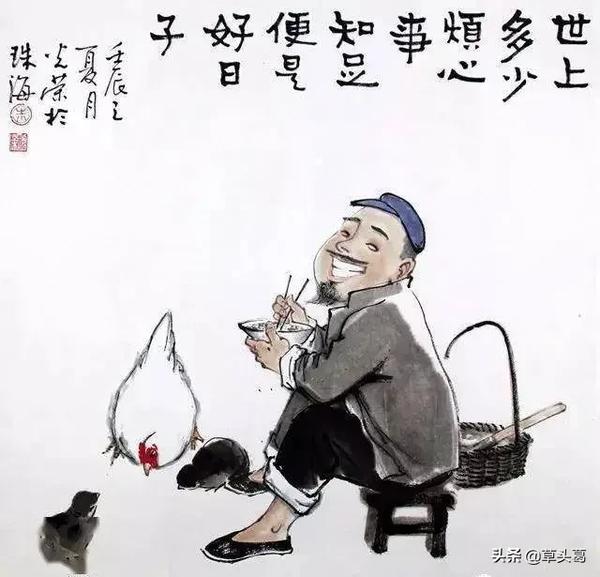 世上
多少
煩心
事
知足
便是
好日
子
壬辰之
夏月
光荣於
珠海
朱
头条 @草头葛